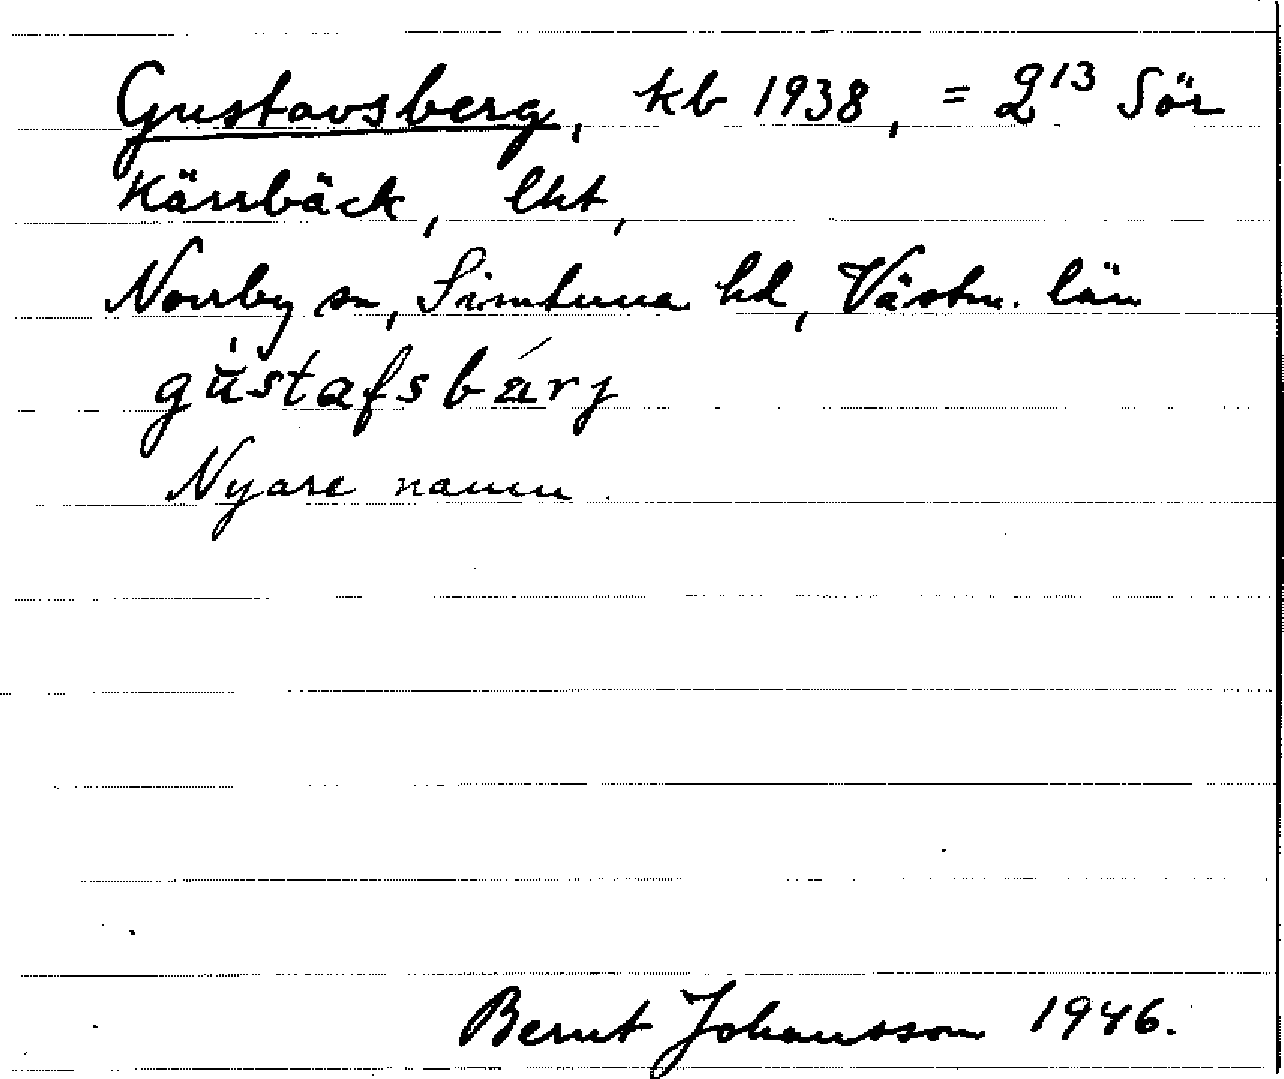 Gustavsberg, kb 1938, = 2¹³ Sör
Kärrbäck, lht,
Norrby sn, Simtuna hd, Västm. län
gùstafsbárj
Nyare namn
Bernt Johansson 1946.